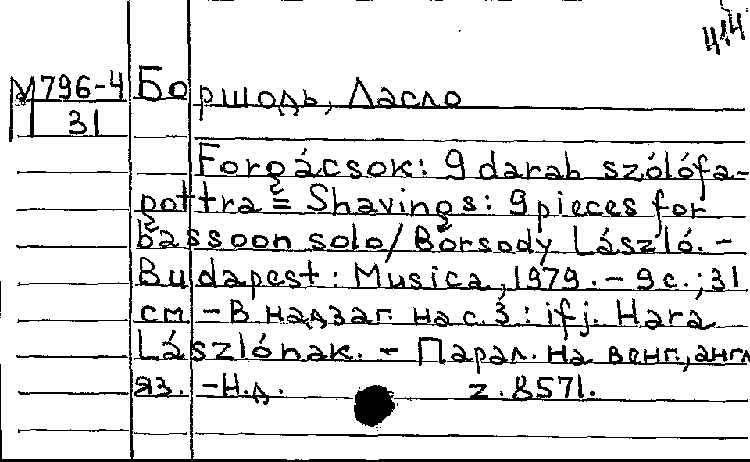 414
М796-4
31
Боршодь, Ласло
Forgácsok: 9 darab szólófa-
gottra = Shavings: 9 pieces for
bassoon solo/Borsody László. -
Budapest: Musica, 1979. - 9 с.; 31
см - В надзаг. на с. 3: ifj. Hara
Lászlónak. - Парал. на венг., англ
яз. - Н.д. Z. 8571.